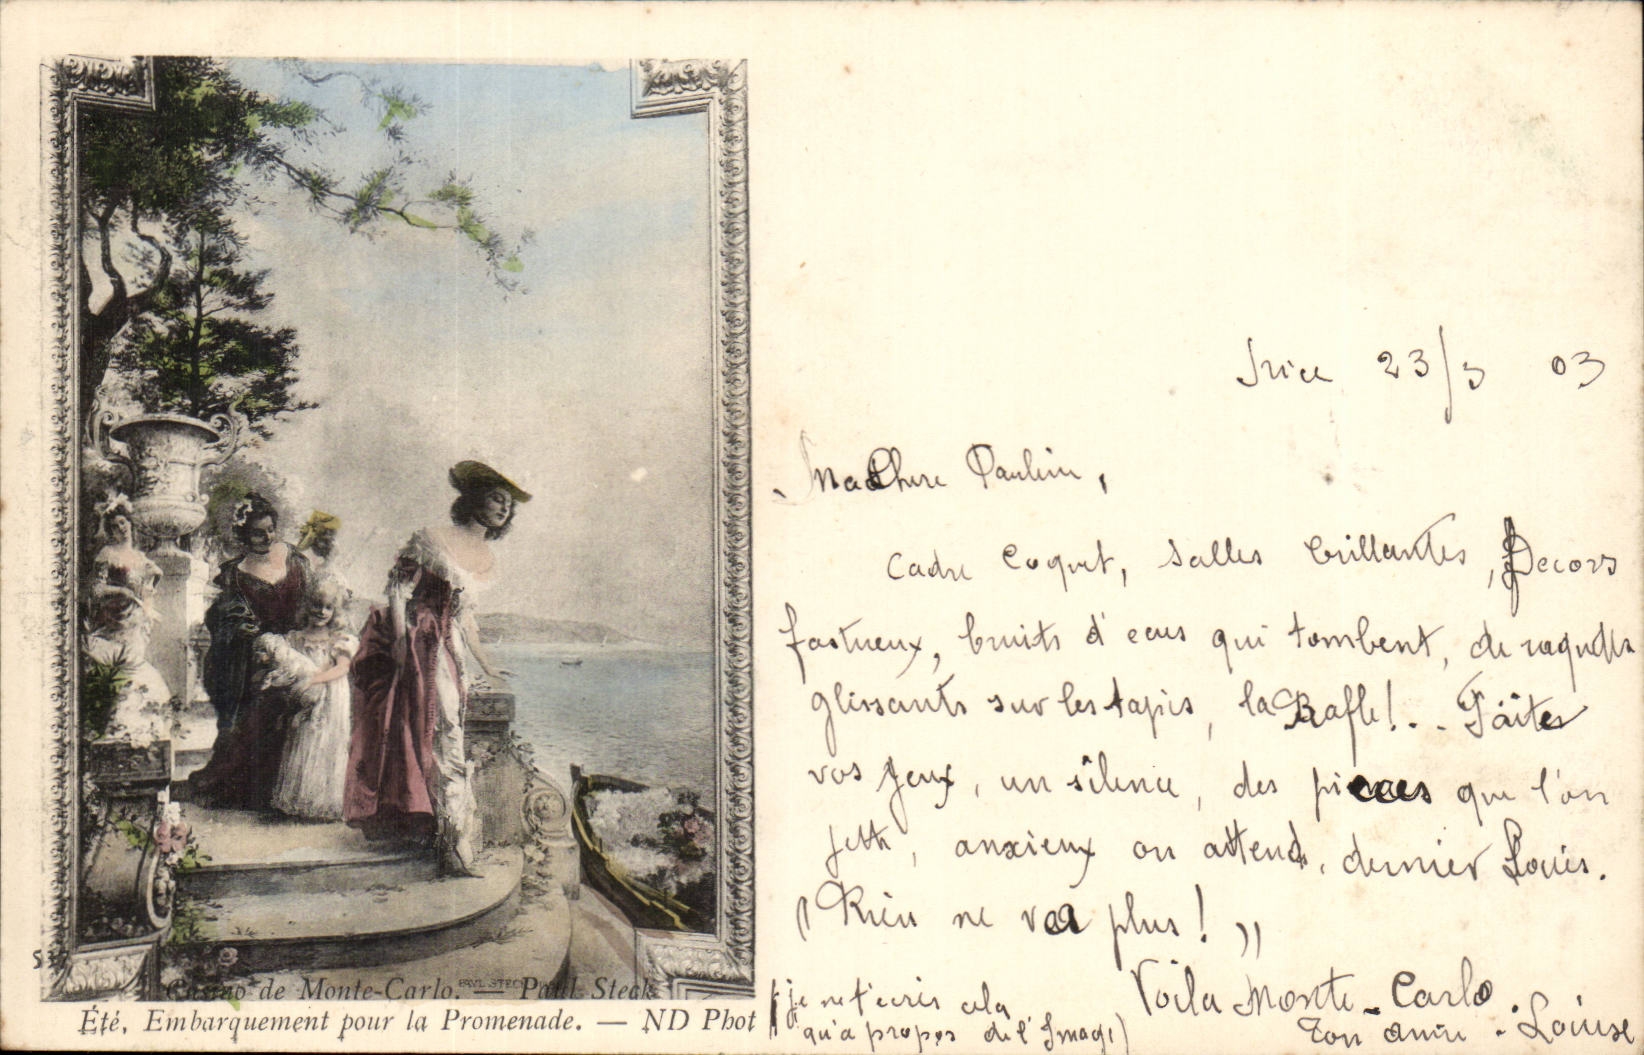 Nice 23/3 03
Ma Chère Pauline,
Cadre Coquet, Salles brillantes, Decors
fastueux, bruits d'ecus qui tombent, de raquettes
glissants sur les tapis, la Rafle!.. Faites
vos jeux, un silence, des pieces que l'on
jette, anxieux on attend, dernier Louis.
"Rien ne va plus!"
Voila Monte-Carlo.
Ton amie. Louise
(je ne t'ecris cela
qu'a propos de l'Image)
PAVL STECK
Casino de Monte-Carlo. — Paul Steck
Été, Embarquement pour la Promenade. — ND Phot